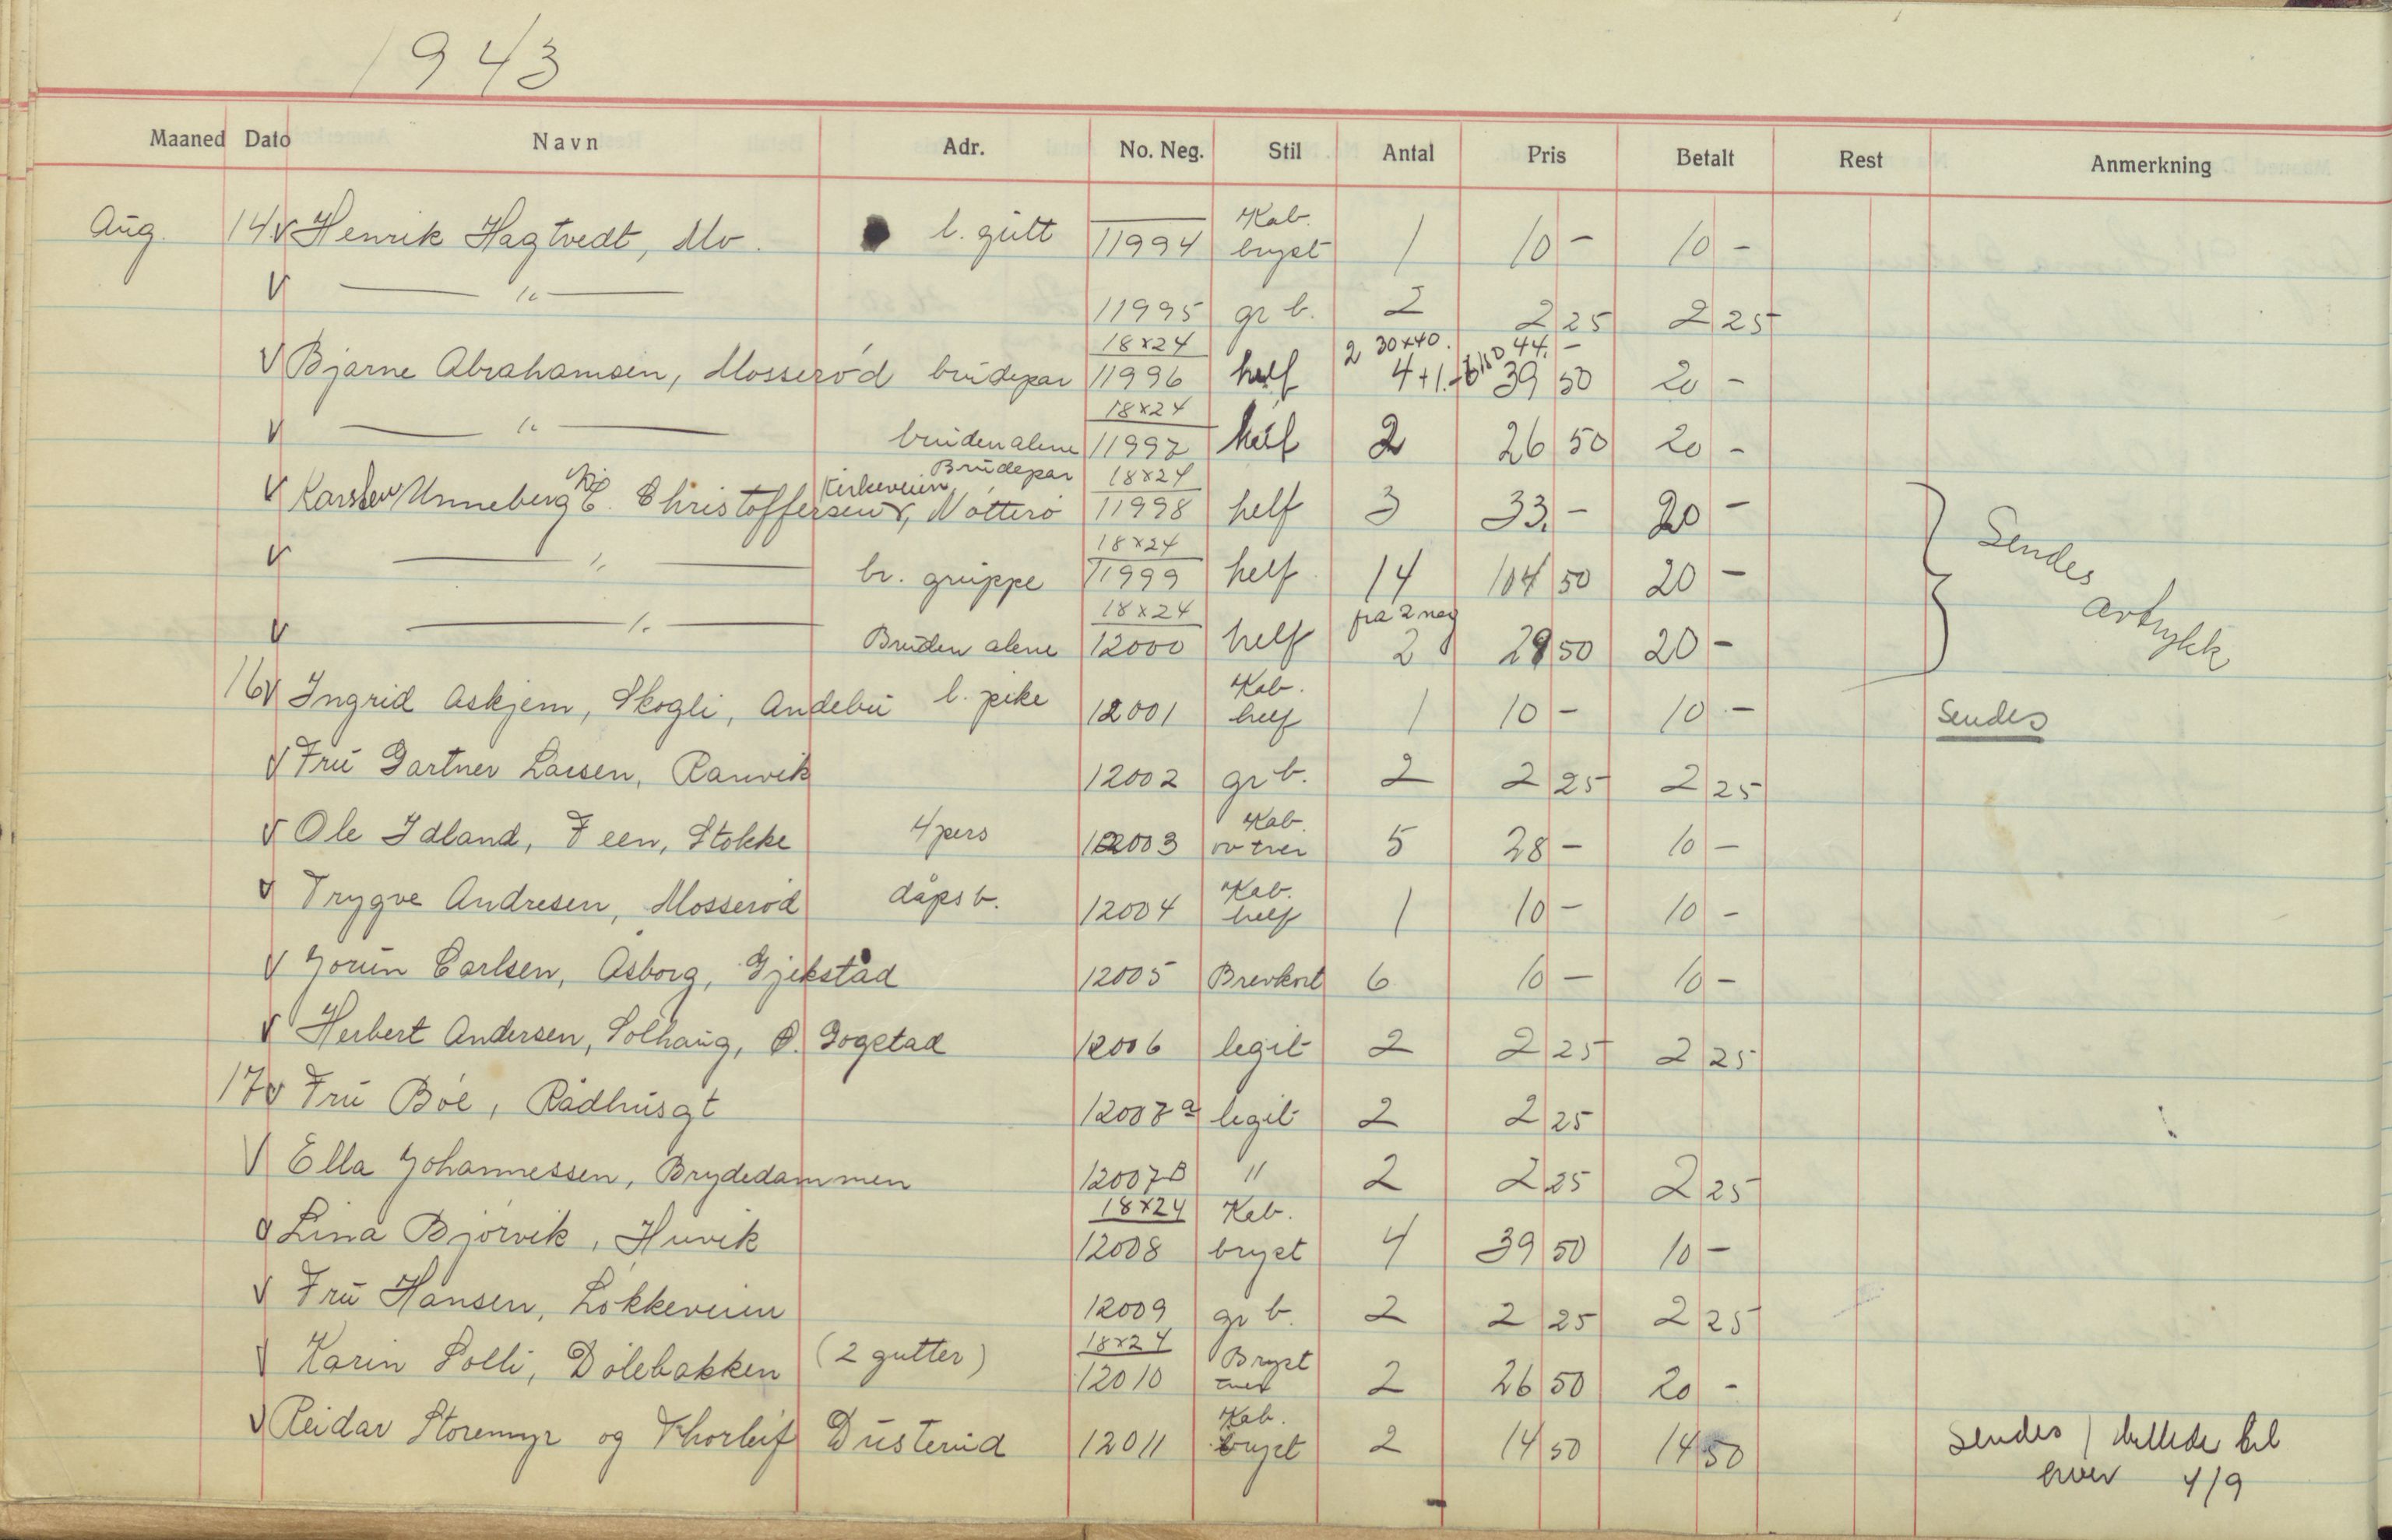 1943
Maaned Dato Navn Adr. No. Neg. Stil Antal Pris Betalt Rest Anmerkning
Aug. 14 V Henrik Hagtvedt, Mo. l. gutt 11994 Kab. bryst 1 10 - 10 -
V — " — 11995 gr b. 2 2 25 2 25
18x24 2 30x40. 44. -
V Bjarne Abrahamsen, Mosserød brudepar 11996 helf 4+1. 39 50 20 -
18x24
V — " — bruden alene 11997 helf 2 26 50 20 -
Kirkeveien Brudepar 18x24
V Karsten Unneberg C. Christoffersen, Nøtterø 11998 helf 3 33. - 20 -
18x24
V — " — br. gruppe 11999 helf 14 104 50 20 - Sendes avtrykk
18x24 fra 2 neg
V — " — Bruden alene 12000 helf 2 29 50 20 -
16 V Ingrid Askjem, Skogli, Andebu l. pike 12001 Kab. helf 1 10 - 10 - Sendes
V Fru Gartner Larsen, Ranvik 12002 gr b. 2 2 25 2 25
V Ole Idland, Feen, Stokke 4 pers 12003 Kab. ov tver 5 28 - 10 -
V Trygve Andresen, Mosserød dåpsb. 12004 Kab. helf 1 10 - 10 -
V Jorun Carlsen, Åsborg, Gjekstad 12005 Brevkort 6 10 - 10 -
V Herbert Andersen, Solhaug, Ø. Gogstad 12006 legit 2 2 25 2 25
17 V Fru Bøe, Rådhusgt 12007 a legit 2 2 25
V Ella Johannessen, Brydedammen 12007 B " 2 2 25 2 25
18x24 Kab.
V Lina Bjørvik, Huvik 12008 bryst 4 39 50 10 -
V Fru Hansen, Løkkeveien 12009 gr b. 2 2 25 2 25
18x24
V Karin Solli, Dølebakken (2 gutter) 12010 Bryst tver 2 26 50 20 -
V Reidar Storemyr og Thorleif Dusterud 12011 Kab. bryst 2 14 50 14 50 Sendes 1 billede til
hver 4/9